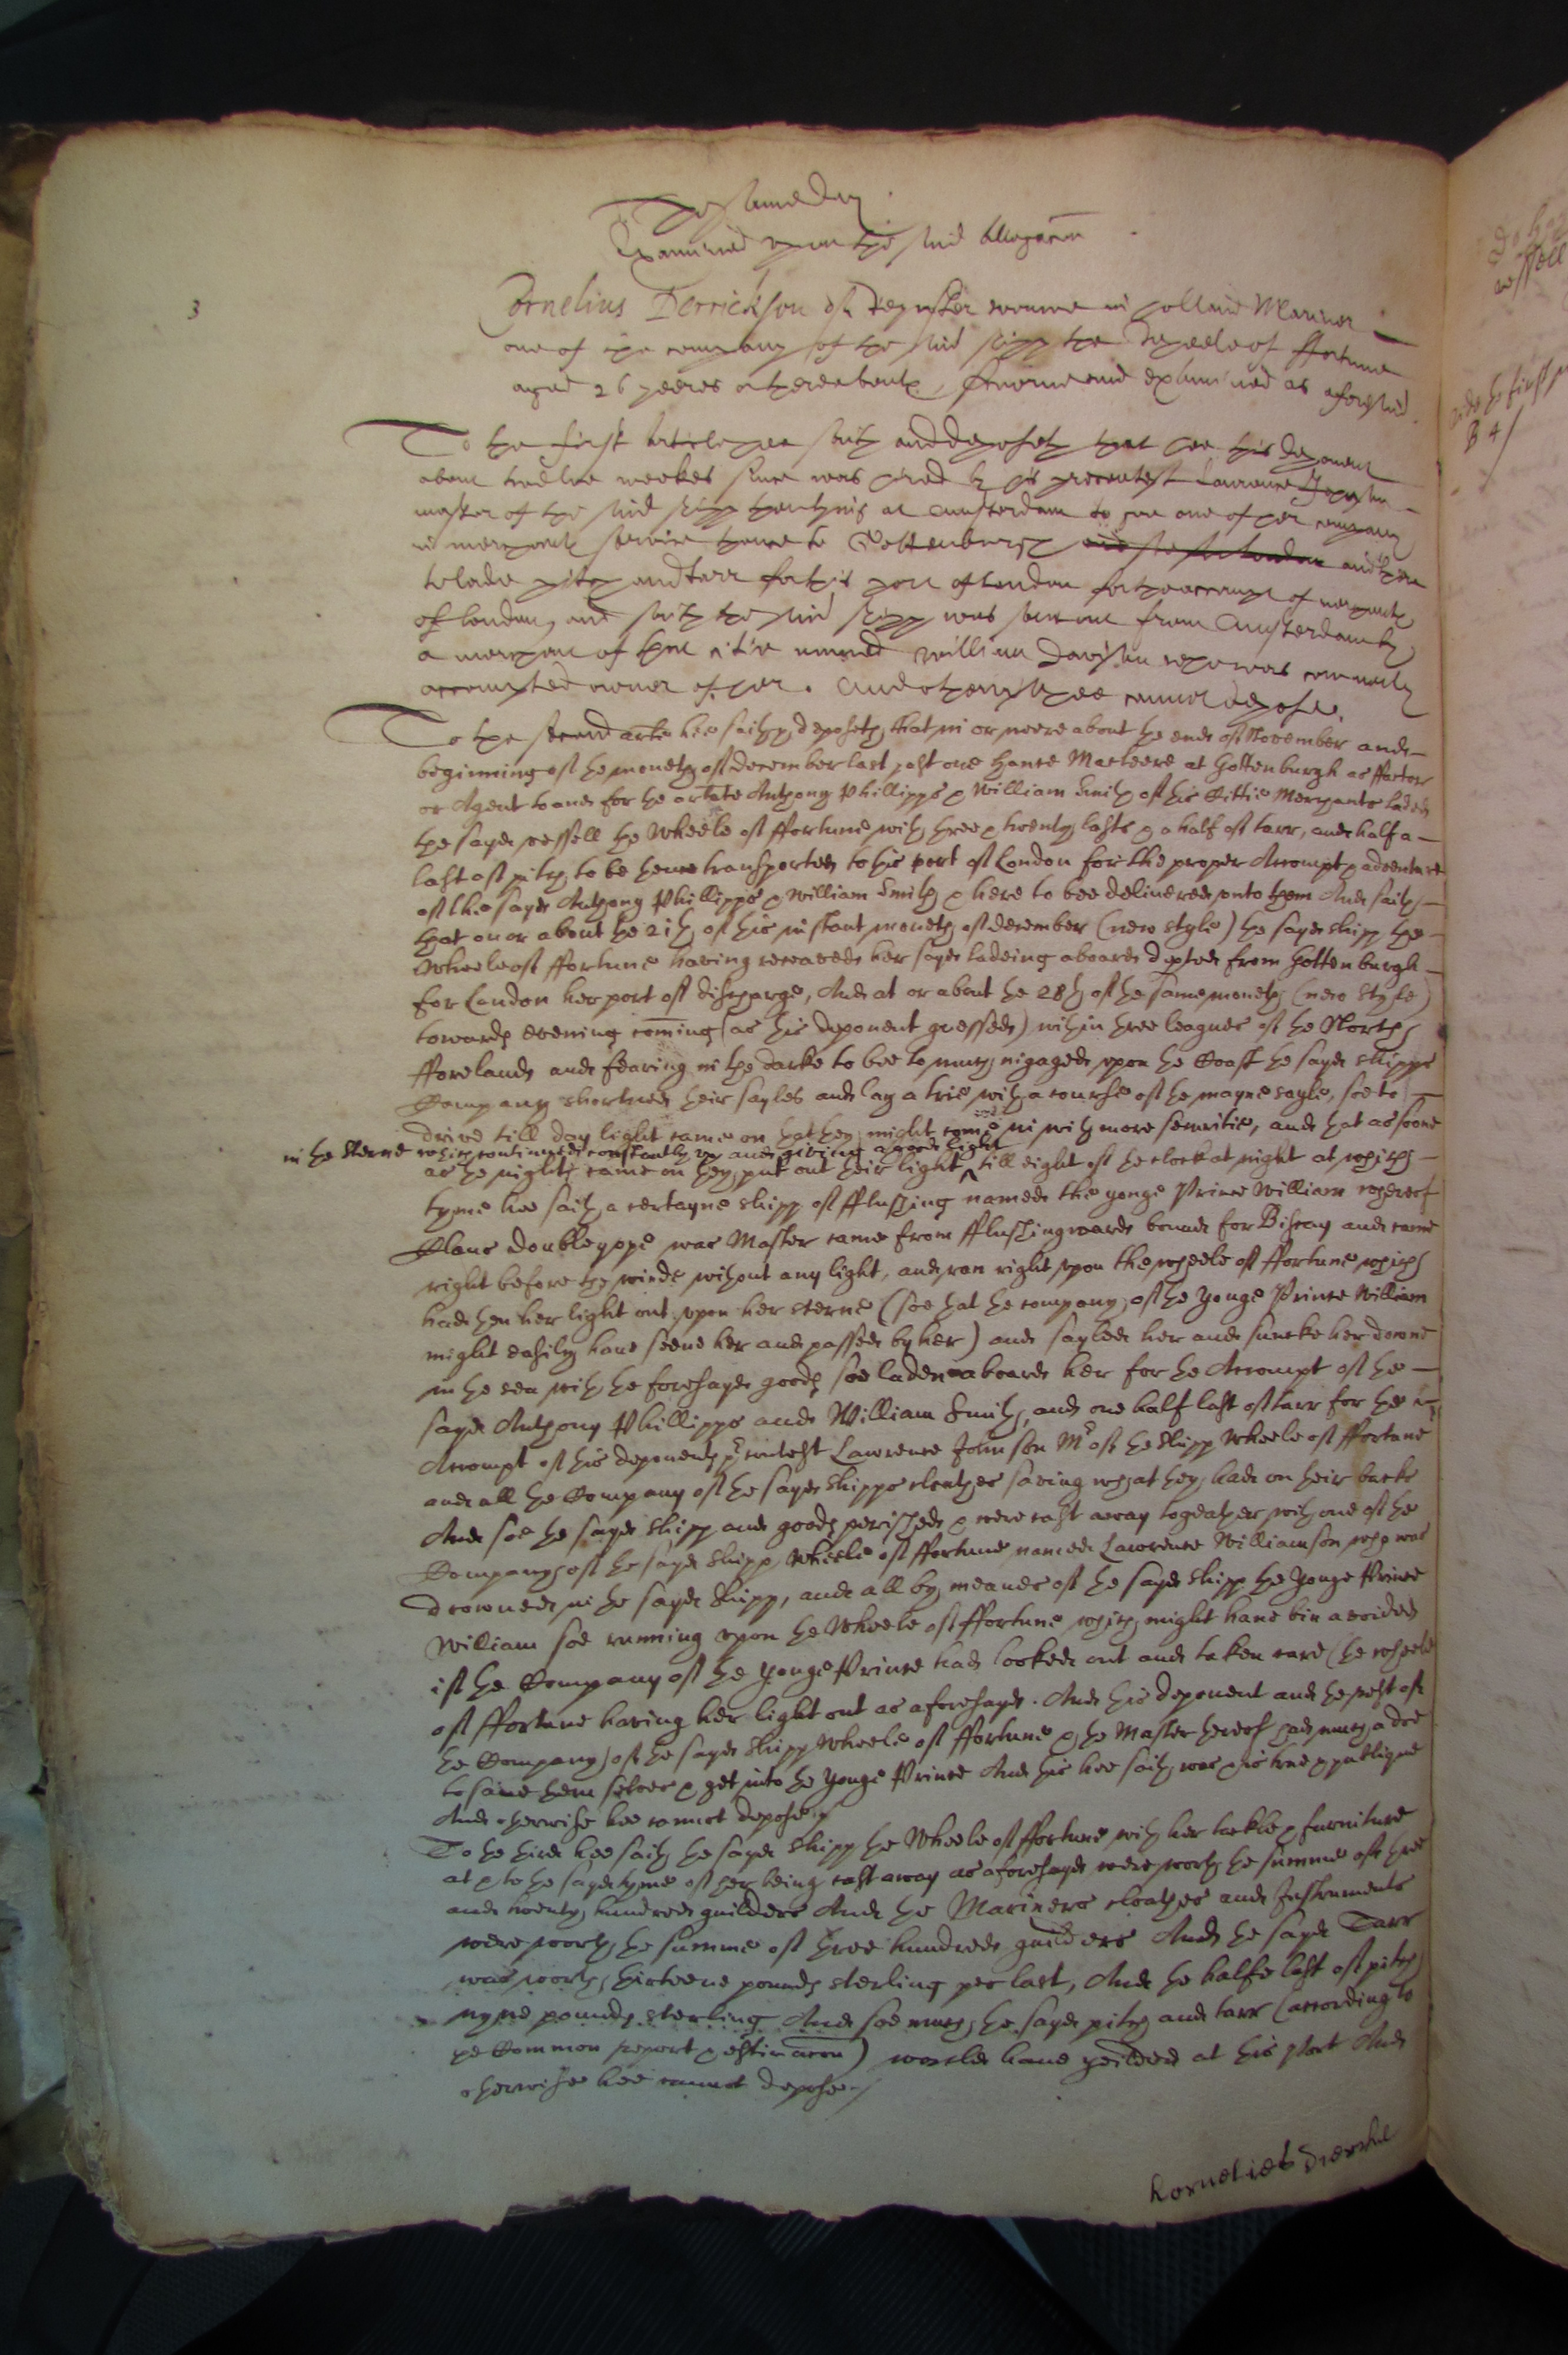 The same day
Examined upon the said Allegacon
3
Cornelius Derrickson of in holland Mariner
one of the company of the said shipp the Wheele of ffortune
aged 26 yeeres or thereabouts, sworne and examined as aforesaid.
To the first article hee saith and deposeth that hee this deponent
about twelve weekes since was hired by his precontest Lawrence Johnson
master of the said shipp then lying at Amsterdam to goe one of her company
in merchants service thence to Gottenburgh and then
to lade pitch and tarr for this port of London for the accompt of merchants
of London, and saith the said shipp was sent out from Amsterdam by
a merchant of that citie named William Davison who was commonly
accompted owner of her. And otherwise hee cannot depose.
To the second arle hee saith & deposeth, that in or neere about the ende of November and
beginning of the moneth of december last past one Hance Macleere at Gottenburgh as ffactor
or Agent to and for the arlate Anthony Phillipps & William Smith of this Cittie Merchants laded
the sayd vessell the Wheele of ffortune with three & twenty lasts & a half of tarr, and half a
last of pitch to be thence transported to this port of London for the proper Accompt & adventure
of the sayd Anthony Phillipps & William Smith & here to bee delivered unto them And saith
that on or about the 21th of this instant moneth of december (new style) the sayd shipp the
Wheele of ffortune having receaved her sayd ladeing aboard depted from Gottenburgh
for London her port of discharge, And at or about the 28th of the same moneth (new style)
towards evening coming (as this deponent guessed) within three leagues of the North
fforeland and fearing in the darke to bee to much ingaged upon the Coast the sayd shipps
Company shortned their sayles and lay a trie with a course of the mayne sayle, soe to
drive till day light came on that they might come in with more securitie, and that as soone
in the Sterne which continued constantly up and giving a good light
as the night came on they put out their light ^ till eight of the clock at night at which
tyme hee saith a certayne shipp of fflushing named the yonge Prince William whereof
Claus doublepype was Master came from fflushingward bound for Biscay and came
right before the winde without any light, and ran right upon the wheele of ffortune which
had then her light out upon her sterne (soe that the company of the yonge Prince William
might easily have seene her and passed by her) and sayled her and suncke her downe
in the sea with the foresayd goods soe laden aboard her for the Accompt of the
sayd Anthony Phillipps and William Smith, and one half last of tarr for the
Accompt of this deponents precontest Lawrence Johnson Mr of the shipp Wheele of ffortune
and all the Company of the sayd shipps cloathes saving what they had on their backs
And soe the sayd shipp and goods perished & were cast away togeather with one of the
Company of the sayd shipp Wheele of ffortune named Lawrence Williamson who was
drowned in the sayd shipp, and all by meanes of the sayd shipp the yonge Prince
William soe running upon the Wheele of ffortune which might have bin avoided
if the Company of the yonge Prince had looked out and taken care (the wheele
of ffortune having her light out as aforesayd. And this deponent and the rest of
the Company of the sayd shipp Wheele of ffortune & the Master thereof had much adoe
to save them selves & get into the yonge Prince And this hee saith was & is true & publique
And otherwise hee cannot depose./
To the third hee saith the sayd shipp the Wheele of ffortune with her tackle & furniture
at & to the sayd tyme of her being cast away as aforesayd were worth the summe of three
and twenty hundred guilders And the Mariners cloathes and Instruments
were worth the summe of three hundred guilders And the sayd Tarr
was worth thirteene pounds sterling per last, And the halfe last of pitch
nyne pounds sterling And soe much the sayd pitch and tarr (according to
the Common report & estimacon) would have yeilded at this Port And
otherwise hee cannot depose./
kornelies